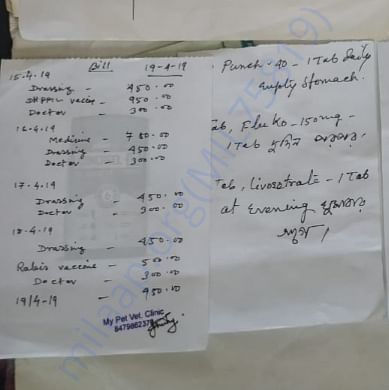 Bill 19-4-19
15.4.19
Dressing - 450.00
DHPPiL vaccine - 950.00
Doctor - 300.00
16-4-19
Medicine - 780.00
Dressing - 450.00
Doctor - 300.00
17-4-19
Dressing - 450.00
Doctor - 300.00
18-4-19
Dressing - 450.00
Rabis vaccine - 500.00
Doctor - 300.00
19/4-19 - 450.00
My Pet Vet. Clinic
Punch-40 - 1 Tab daily
empty stomach.
Tab, Fluko-150mg -
1 Tab
Tab, livosotrate - 1 Tab
at Evening
milaap.org(Mil-75819)